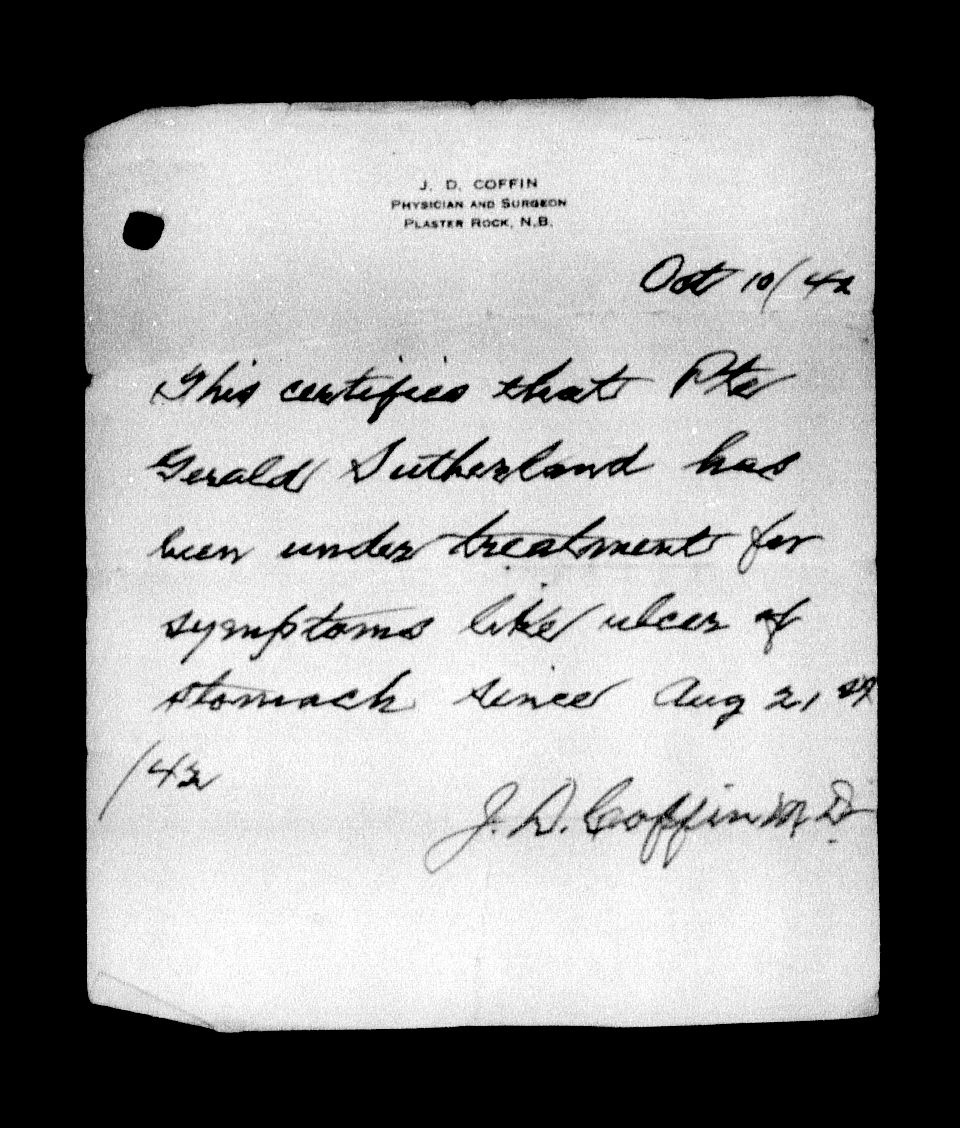 J. D. COFFIN
PHYSICIAN AND SURGEON
PLASTER ROCK, N.B.
Oct 10/42
This certifies that Pte
Gerald Sutherland has
been under treatment for
symptoms like ulcer of
stomach since Aug 21, st
/42
J. D. Coffin M.D.